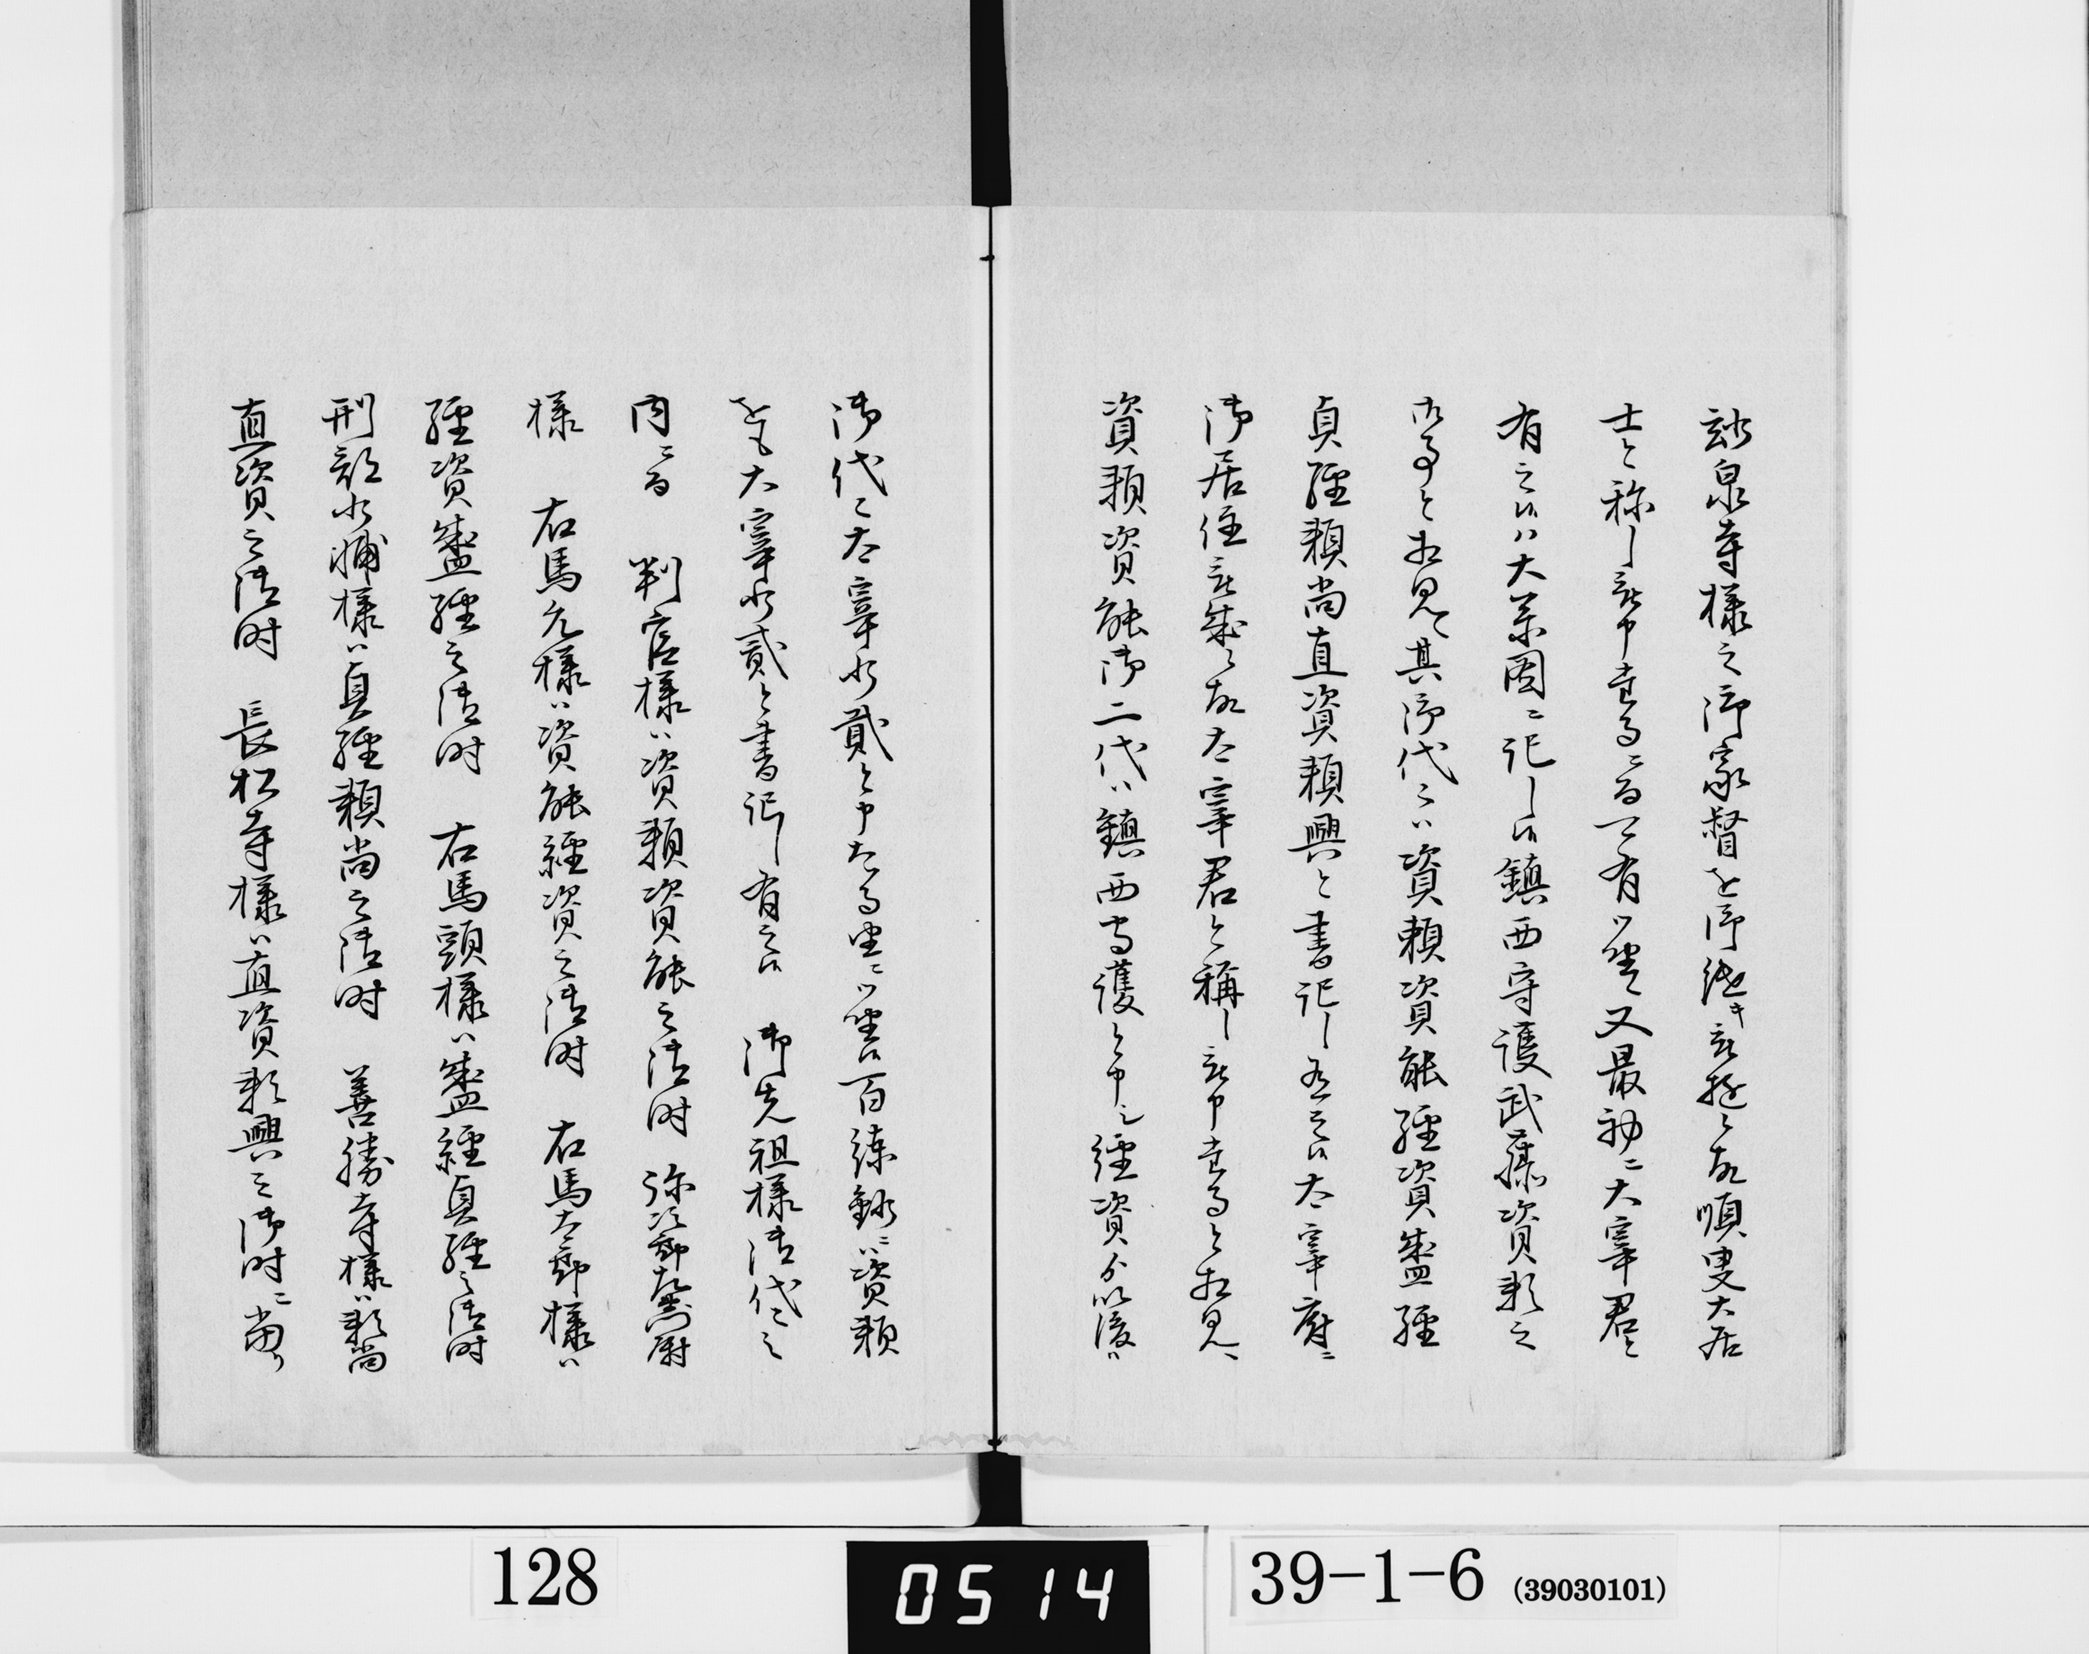 泉寺様之御家督を御継キ被遊候故順叟大居
士と称し被申事ニ而可有御坐候又最初ニ大宰君と
有之候ハ大系図ニ記し候鎮西守護武藤資頼之
御事と相見へ其御代ニハ資頼資能経資盛経
貞経頼尚直資頼興と書記し有之候太宰府ニ
御居住被成候故太宰君と称し被申事と相見ヘ
資頼資能御二代ハ鎮西守護と申シ経資ゟ以後ハ
御代々太宰少貳と申たる由ニ御坐候百練鈔ニハ資頼
をも大宰少貳と書記し有之候　御先祖様御代々之
内ニ而　判官様ハ資頼資能之御時　弥次郎左衛門尉
様　右馬允様ハ資能経資之御時　右馬太郎様ハ
経資盛経之御時　右馬頭様ハ盛経貞経之御時
刑部少輔様ハ貞経頼尚之御時　善勝寺様ハ頼尚
直資之御時　長松寺様ハ直資頼興之御時ニ当り
128
0514
39-1-6 (39030101)